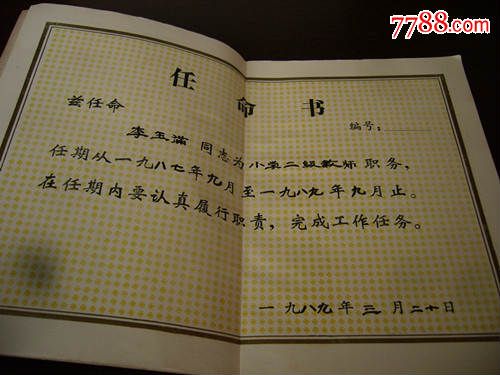 7788.com
中国收藏热线
任命书
编号：
兹任命
李玉满 同志为小学二级教师 职务，
任期从一九八七年九月至一九八九年九月止。
在任期内要认真履行职责，完成工作任务。
一九八九年三月二十日